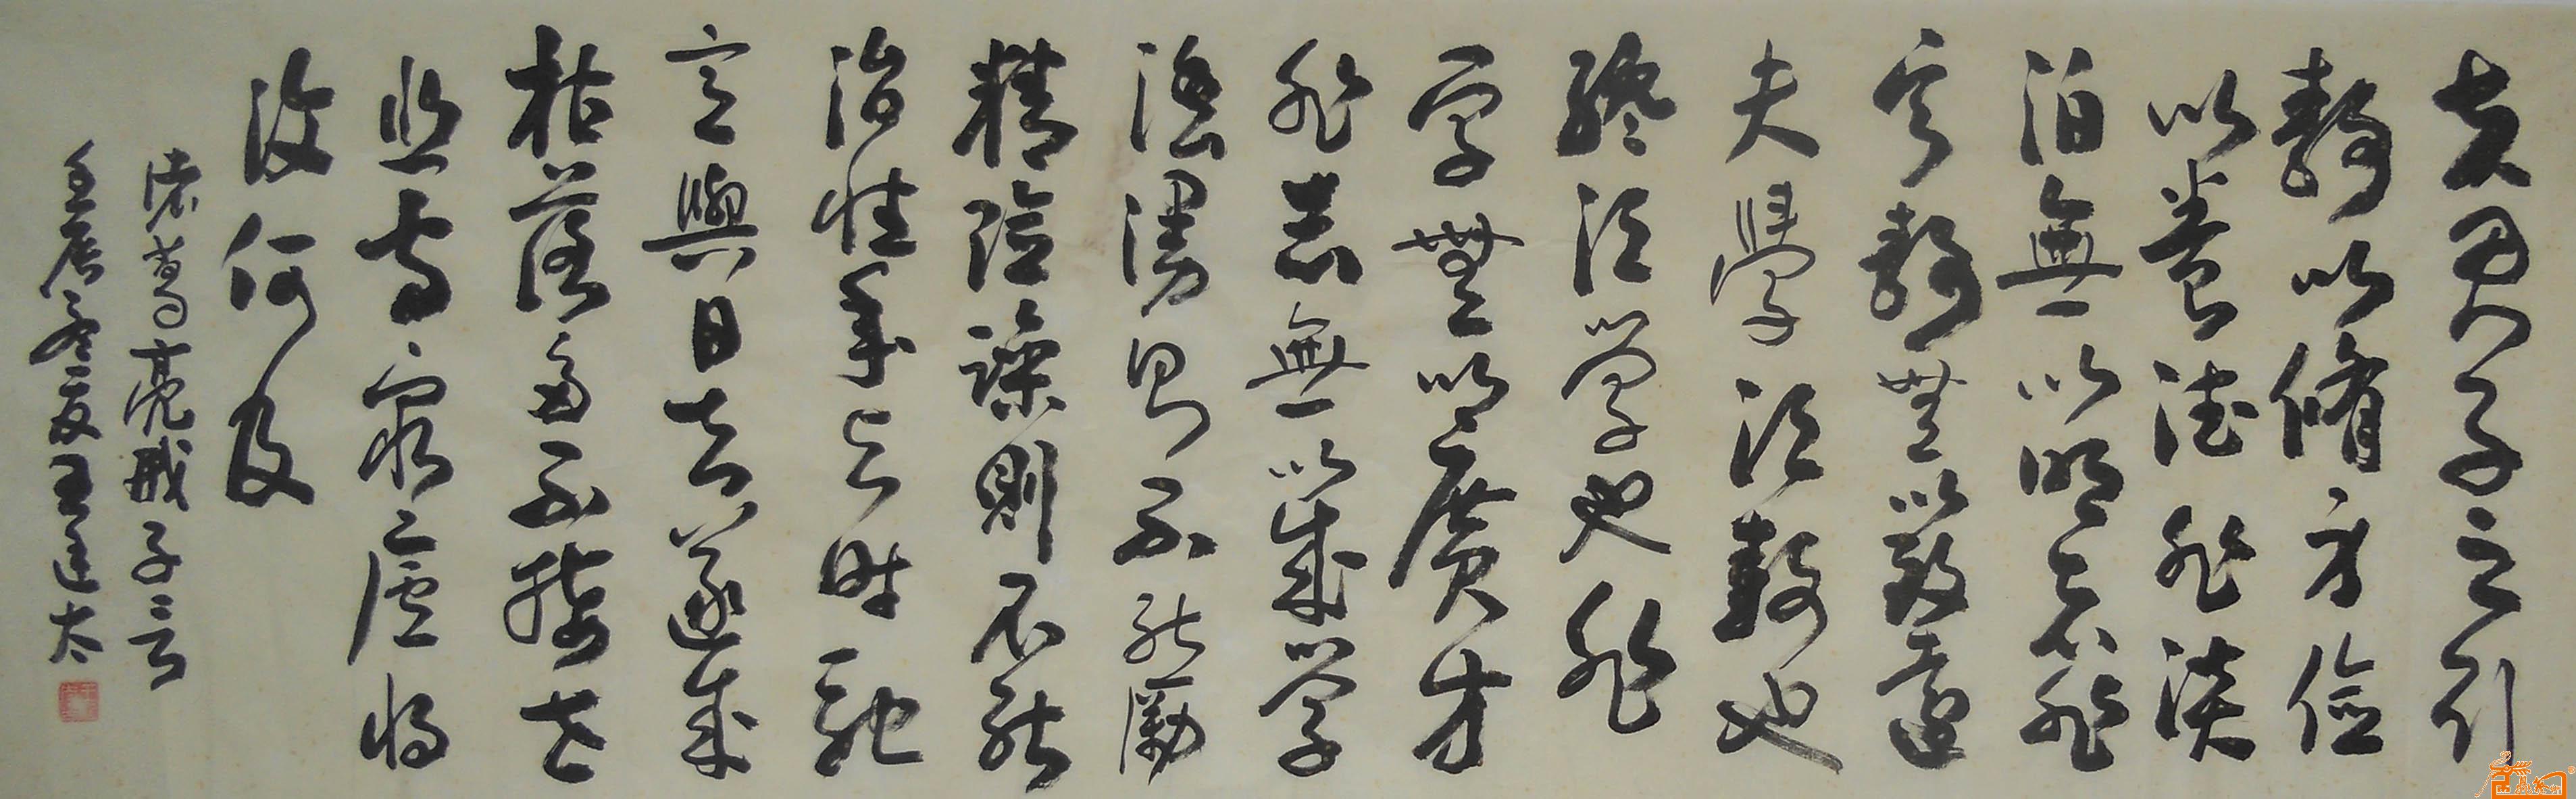 夫君子之行
靜以脩身儉
以養德非淡
泊無以明志非
寧靜無以致遠
夫學須靜也
纔須学也非
学無以廣才
非志無以成学
淫漫則不能勵
精險躁則不能
治性年与時馳
意與日去遂成
枯落多不接世
悲守窮廬將
復何及
諸葛亮戒子言
壬辰冬王廷太